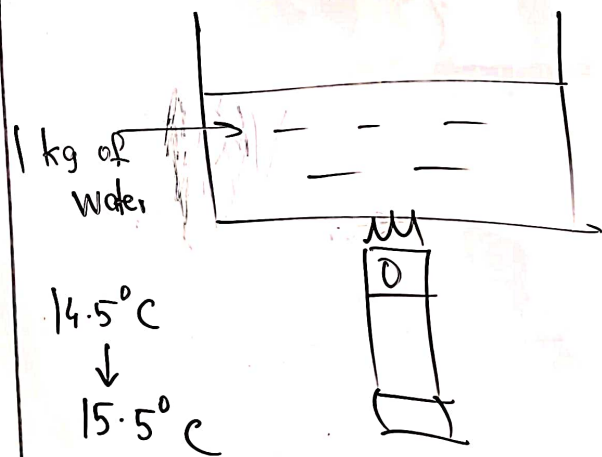 1 kg of
water
14.5°C
↓
15.5°C